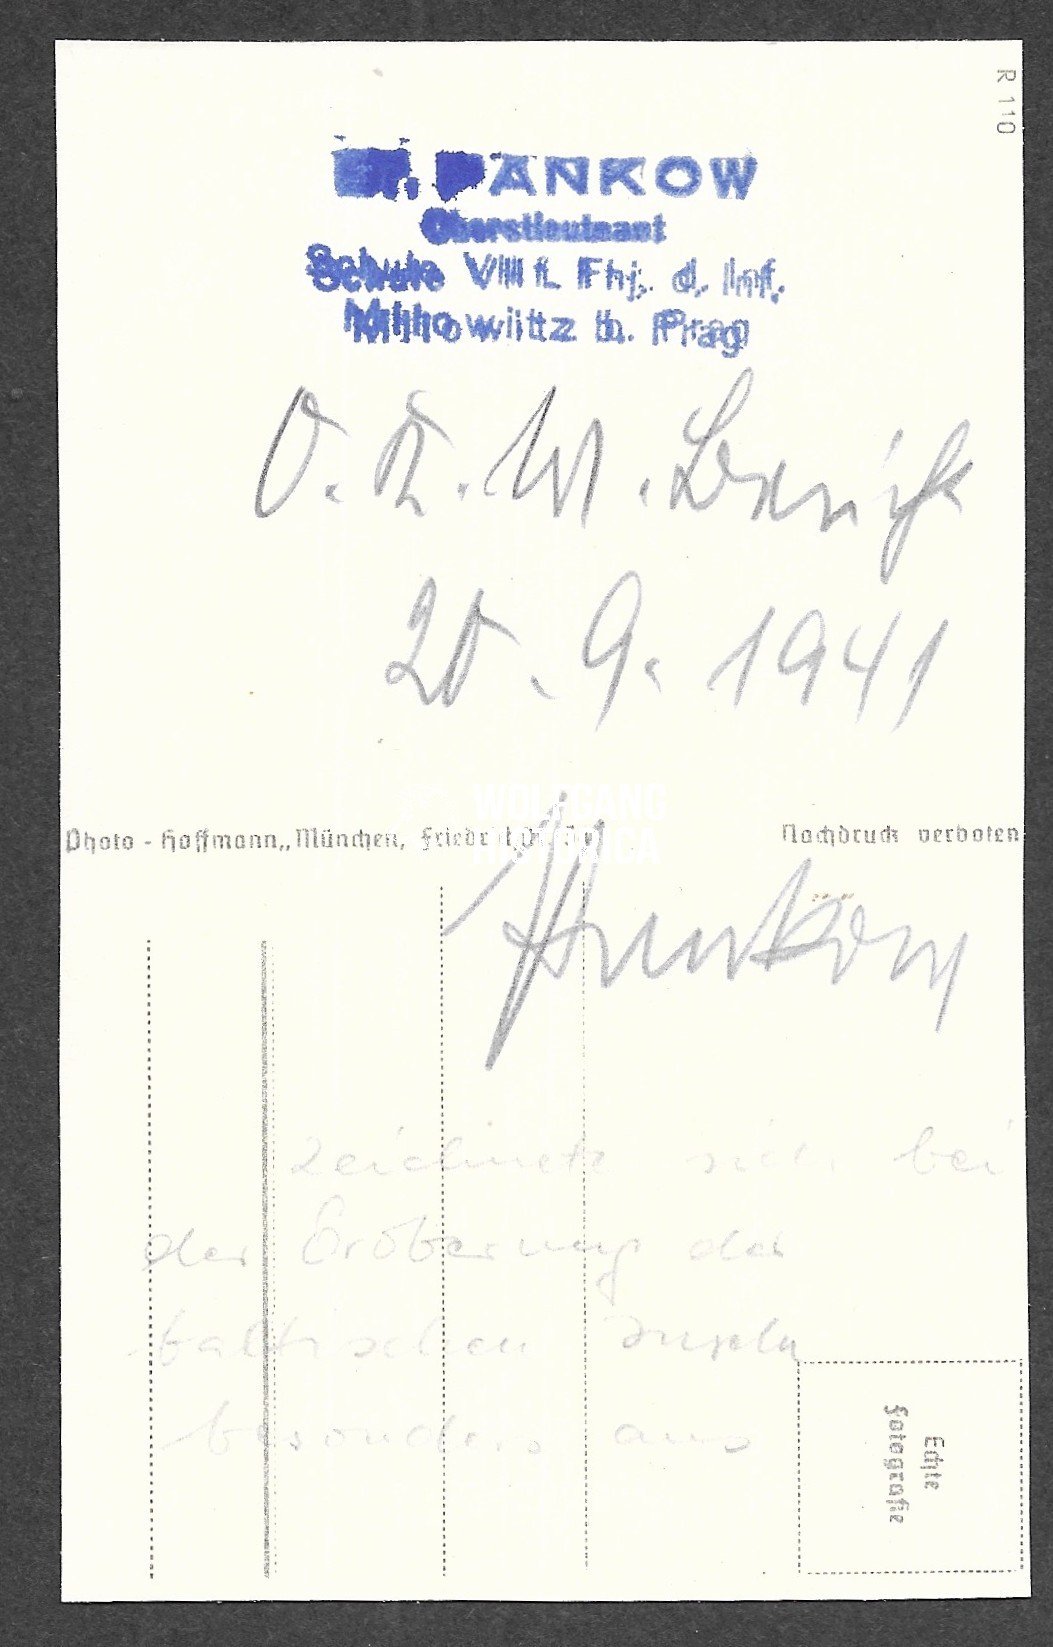 R 110
PANKOW
Oberstleutnant
Schule VIII f. Fhj. d. Inf.
Milowitz b. Prag
O. K. W. Bericht
20. 9. 1941
WOLFGANG
HISTORICA
Photo-Hoffmann, München,
Nachdruck verboten
Pankow
zeichnete sich bei
der Eroberung der
baltischen Inseln
besonders aus
Echte
Fotografie